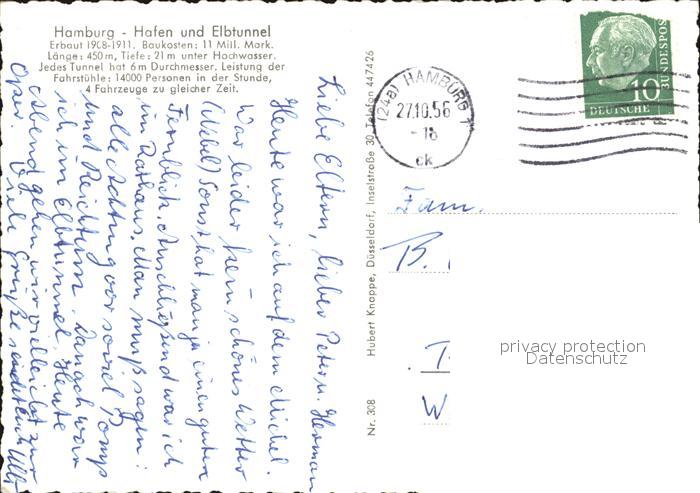 Hamburg - Hafen und Elbtunnel
Erbaut 1908-1911. Baukosten: 11 Mill. Mark.
Länge: 450 m, Tiefe: 21 m unter Hochwasser.
Jedes Tunnel hat 6 m Durchmesser. Leistung der
Fahrstühle: 14000 Personen in der Stunde,
4 Fahrzeuge zu gleicher Zeit.
Liebe Eltern, lieber Peter u. Herman
Heute war ich auf dem Michel.
War leider kein schönes Wetter
(Nebel) Sonst hat man ja einen guten
Fernblick. Anschließend war ich
im Rathaus. Man muß sagen:
alle Achtung vor soviel Pomp
und Reichtum. Danach war
ich im Elbtunnel. Heute
Abend gehen wir vielleicht zur
Oper. Viele Grüße sendet Euch
Nr. 308
Hubert Knoppe, Düsseldorf, Inselstraße 30, Telefon 447426
(24a) HAMBURG 1
27.10.56
- 18
ck
10
DEUTSCHE
BUNDESPOST
Fam.
B.
T
W
privacy protection
Datenschutz